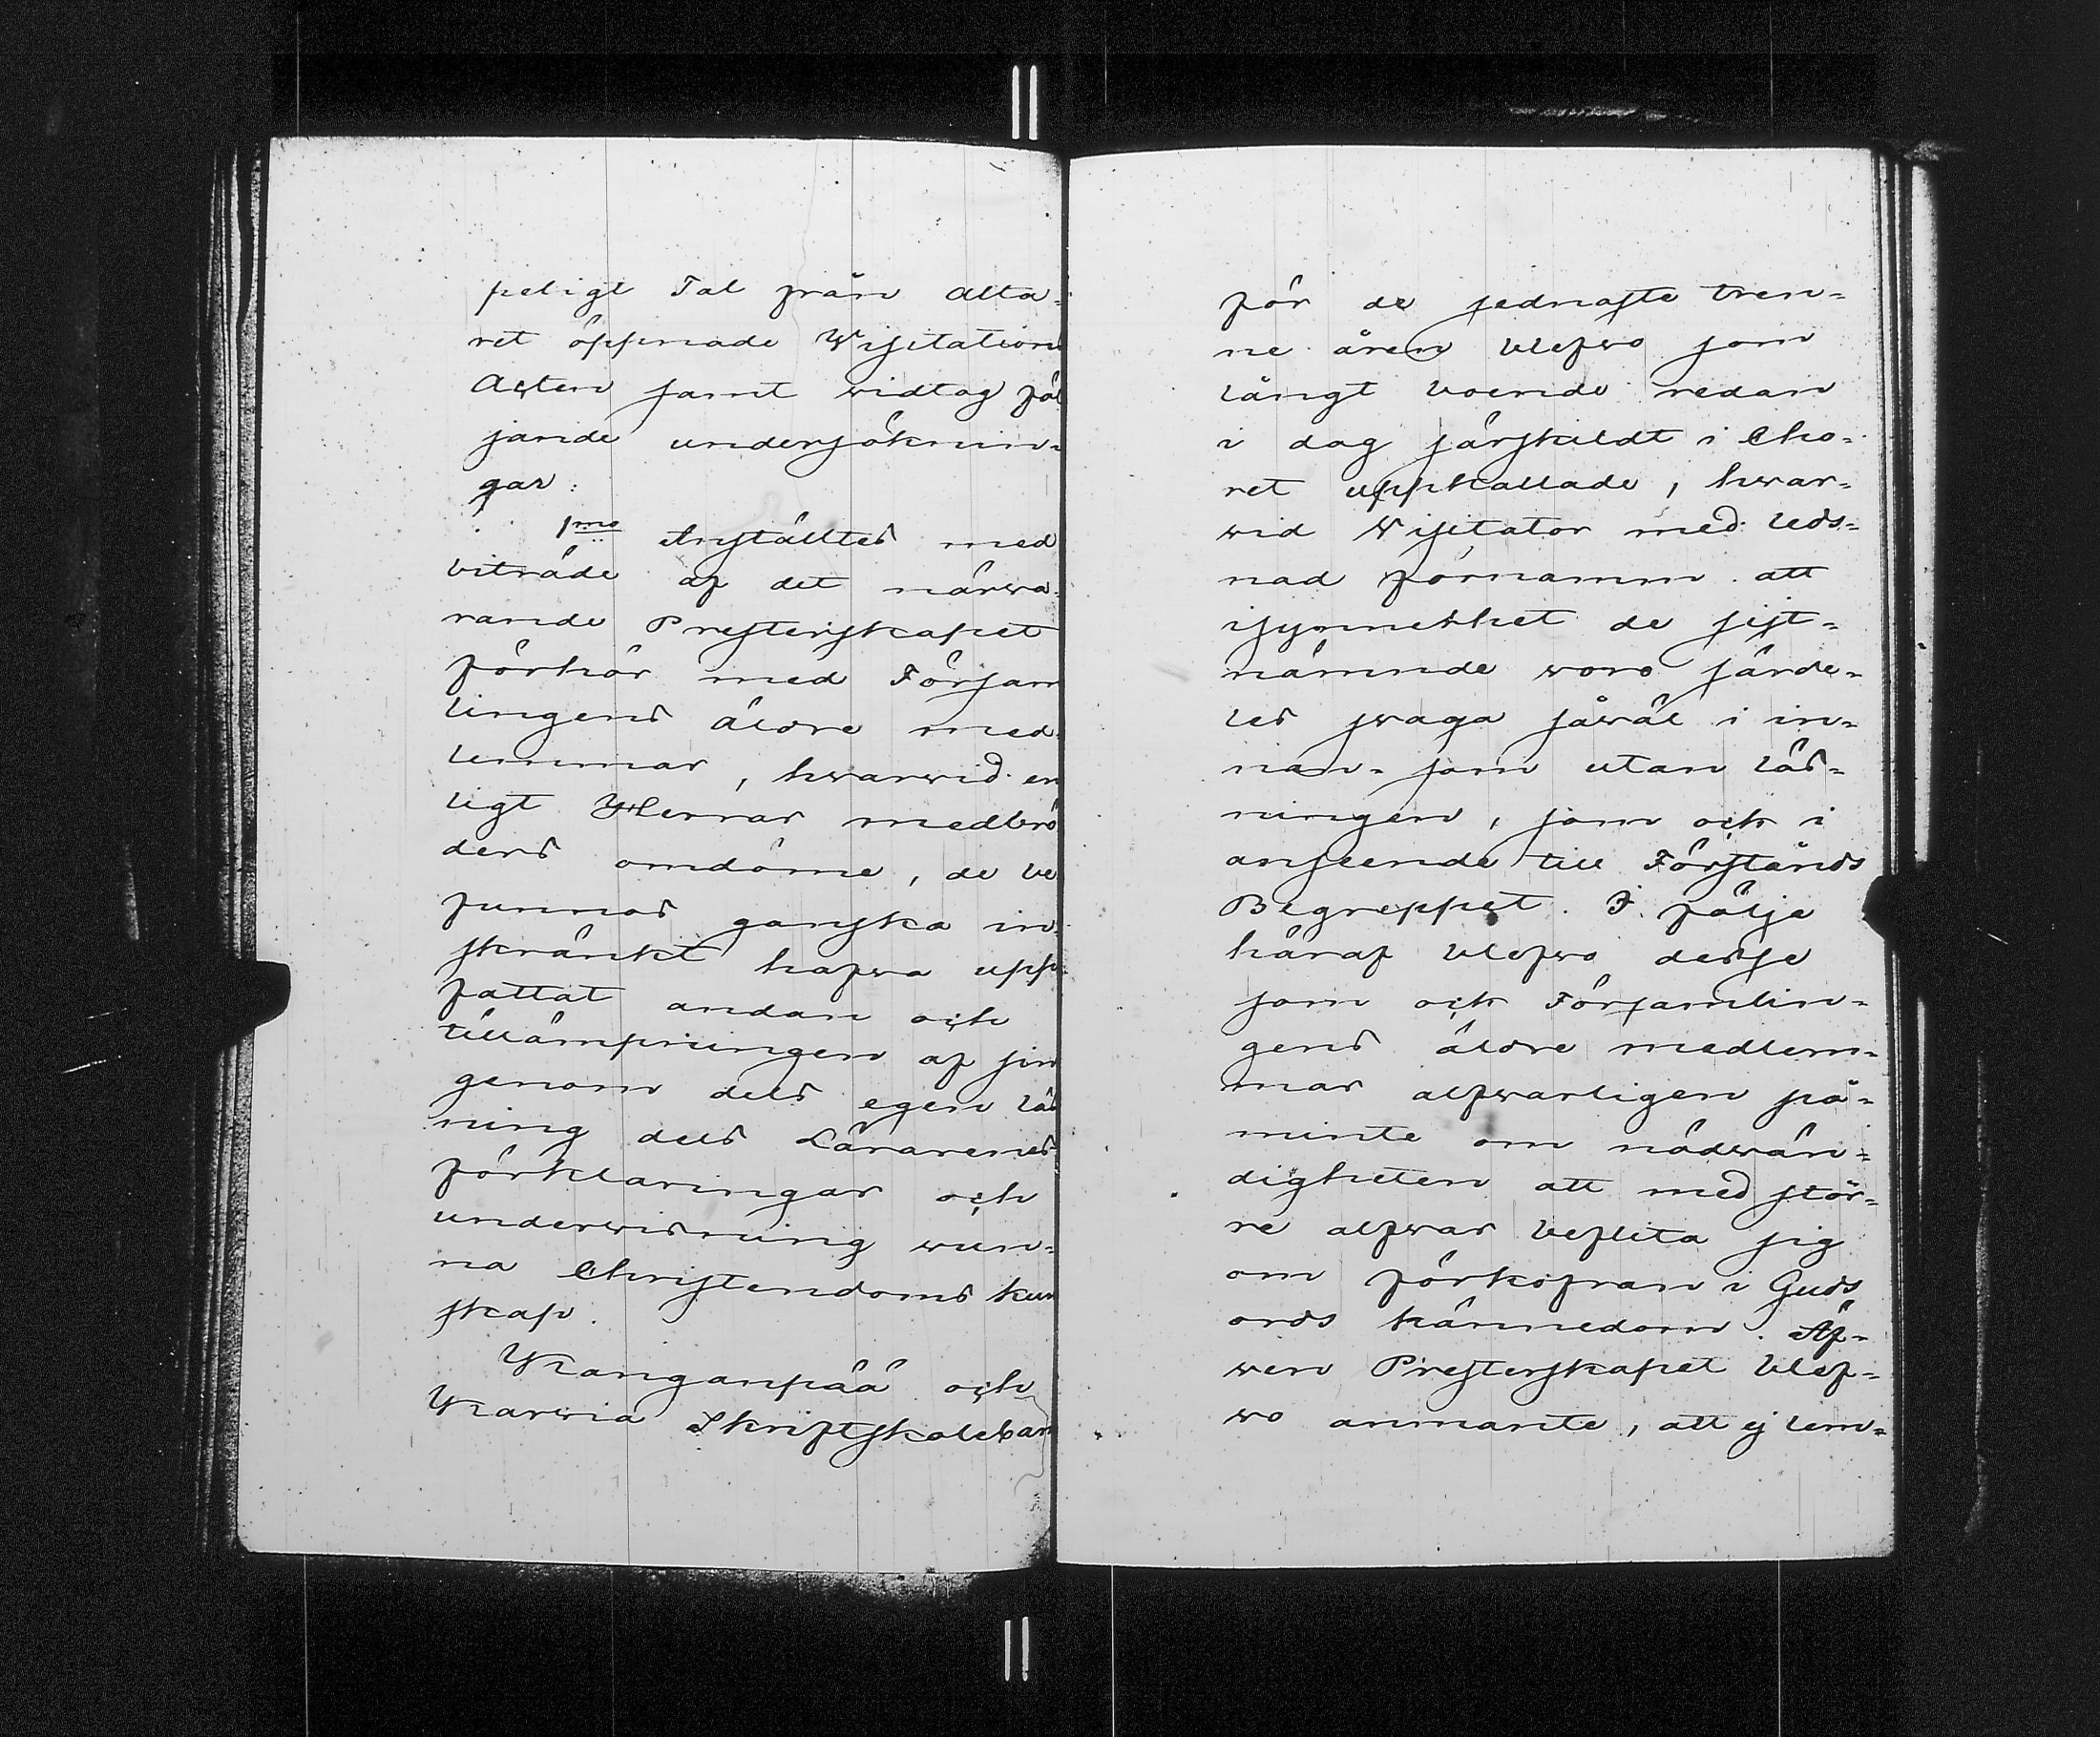 peligt Tal från Alta-
ret öppnade Visitations
Acten samt vidtog föl
jande undersöknin-
gar:
1mo Anställtes med
biträde af det närva-
rande Presterskapet
förhör med Försam
lingens äldre med-
lemmar, hvarvid en
ligt Herrar medbrö
ders omdöme, de be
funnos ganska in-
skränkt hafva upp
fattat andan och
tillämpningen af sin
genom dels egen läs
ning dels Lärarenes
förklaringar och
undervisning vun-
na Christendoms kun
skap.
Kanganpää och
Karvia Skriftskolebarn
för de sednaste tren-
ne åren blefvo som
långt boende redan
i dag särskildt i Cho-
ret uppkallade, hvar-
vid Visitator med leds-
nad förnamm att
isynnerhet de sist-
nämnde voro särde-
les svaga såväl i in-
nan- som utan läs-
ningen, som och i
anseende till Förstånds
Begreppet. I följe
häraf blefvo desse
som och Församlin-
gens äldre medlem-
mar alfvarligen på-
minte om nödvän-
digheten att med stör-
re alfvar beflita sig
om förkofran i Guds
ords kännedom. Äf-
ven Presterskapet blef-
vo anmante, att ej lem-